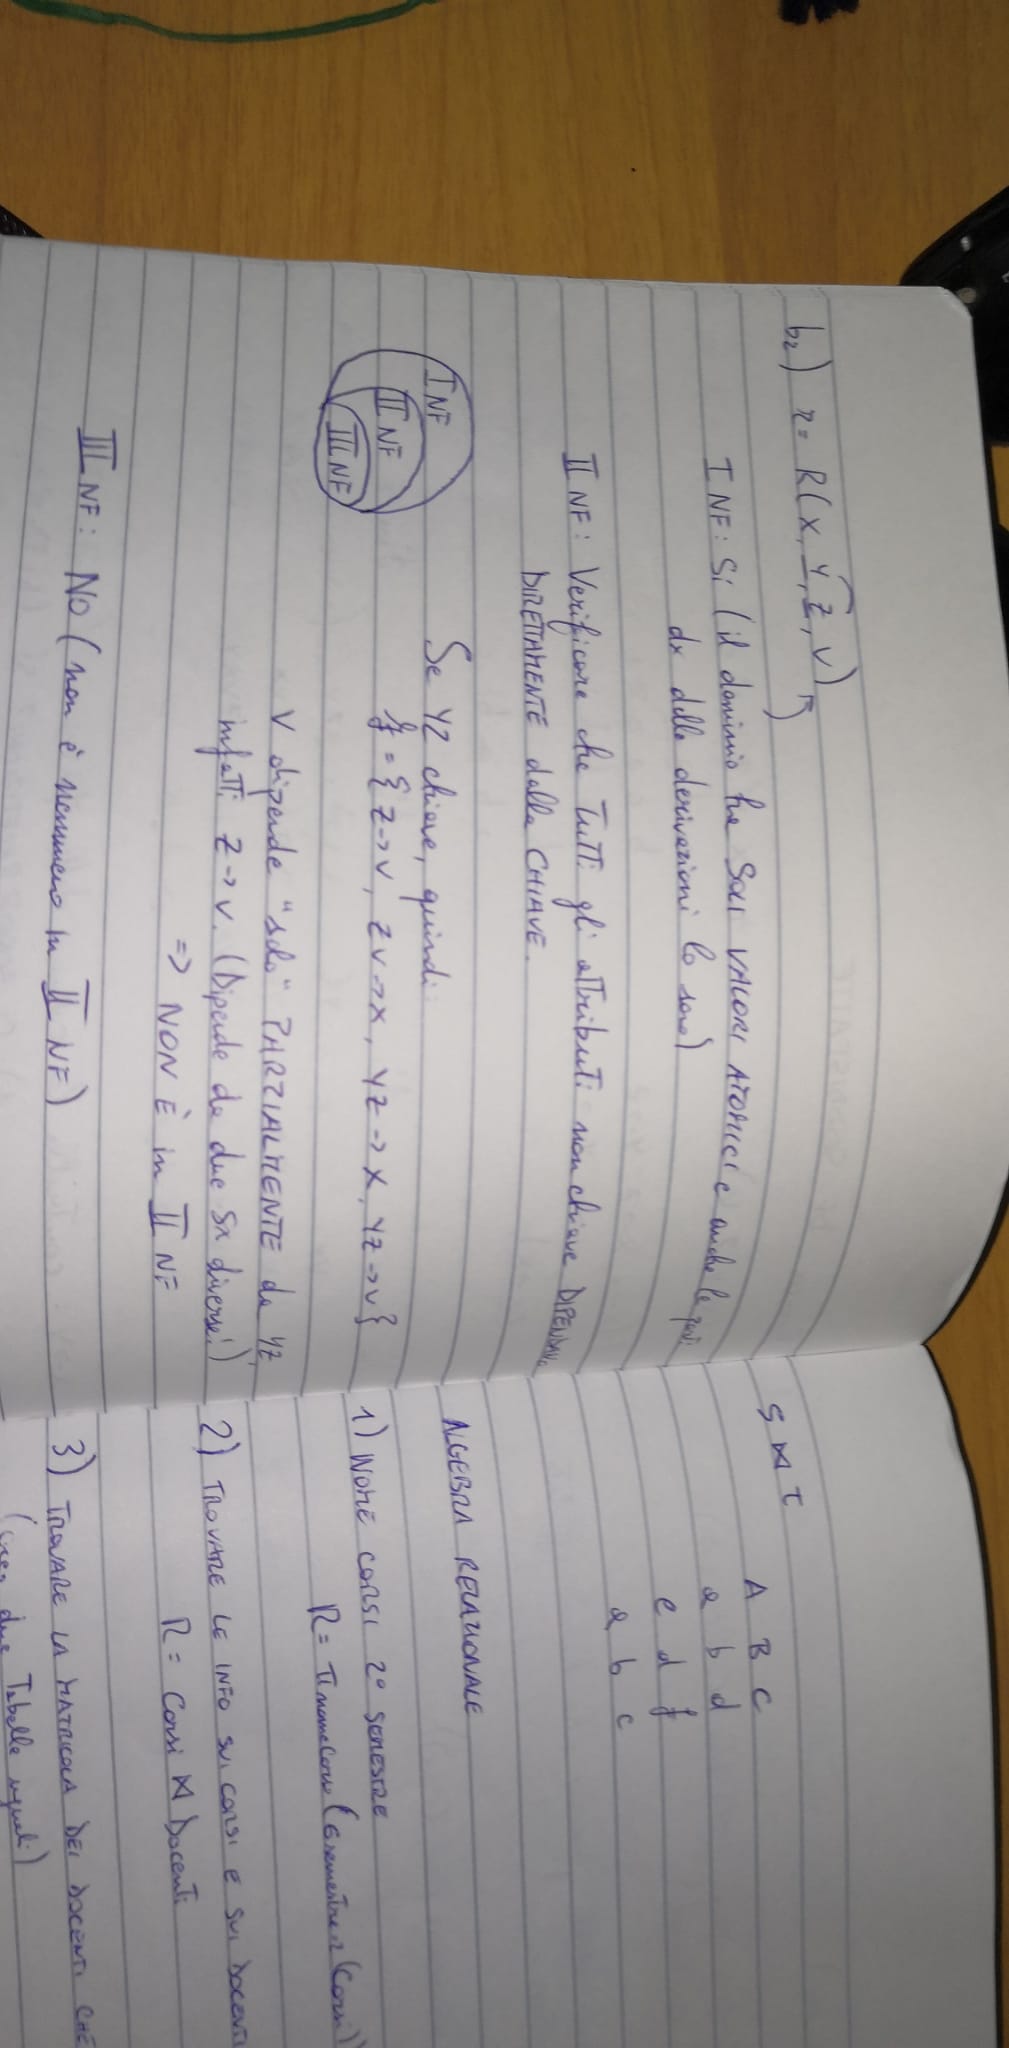 b2) r = R(X, Y, Z, V)
I NF: Sì (il dominio ha SOLI VALORI ATOMICI e anche le parti
dx delle derivazioni lo sono)
II NF: Verificare che TUTTI gli attributi non chiave DIPENDANO
DIRETTAMENTE dalla CHIAVE.
I NF
II NF
III NF
Se YZ chiave, quindi
f = {Z->V, ZV->X, YZ->X, YZ->V}
V dipende "solo" PARZIALMENTE da YZ,
infatti Z->V. (Dipende da due Sx diverse!)
=> NON È in II NF
III NF: NO (non è nemmeno in II NF)
S ⋈ T
A B C
a b d
e d f
a b c
ALGEBRA RELAZIONALE
1) NOME CORSI 2° SEMESTRE
R = π nomeCorso (σ semestre=2 (Corsi))
2) TROVARE LE INFO SUI CORSI E SUI DOCENTI
R = Corsi ⋈ Docenti
3) TROVARE LA MATRICOLA DEI DOCENTI CHE
due Tabelle uguali)